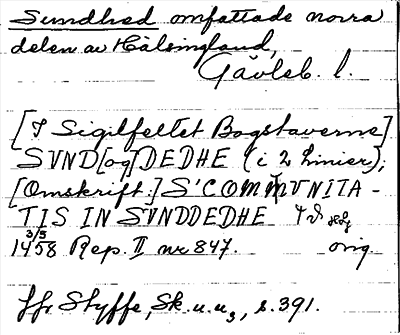 Sundhed omfattade norra
delen av Hälsingland,
Gävleb. l.
[I Sigilfeltet Bogstaverne]
SVND [og] DEDHE (i 2 Linier);
[Omskrift:] S' COMMVNITA-
TIS IN SVNDDEDHE
3/5
1458 Rep. II nr 847. orig.
Jfr Styffe, Sk. u. u3, s. 391.